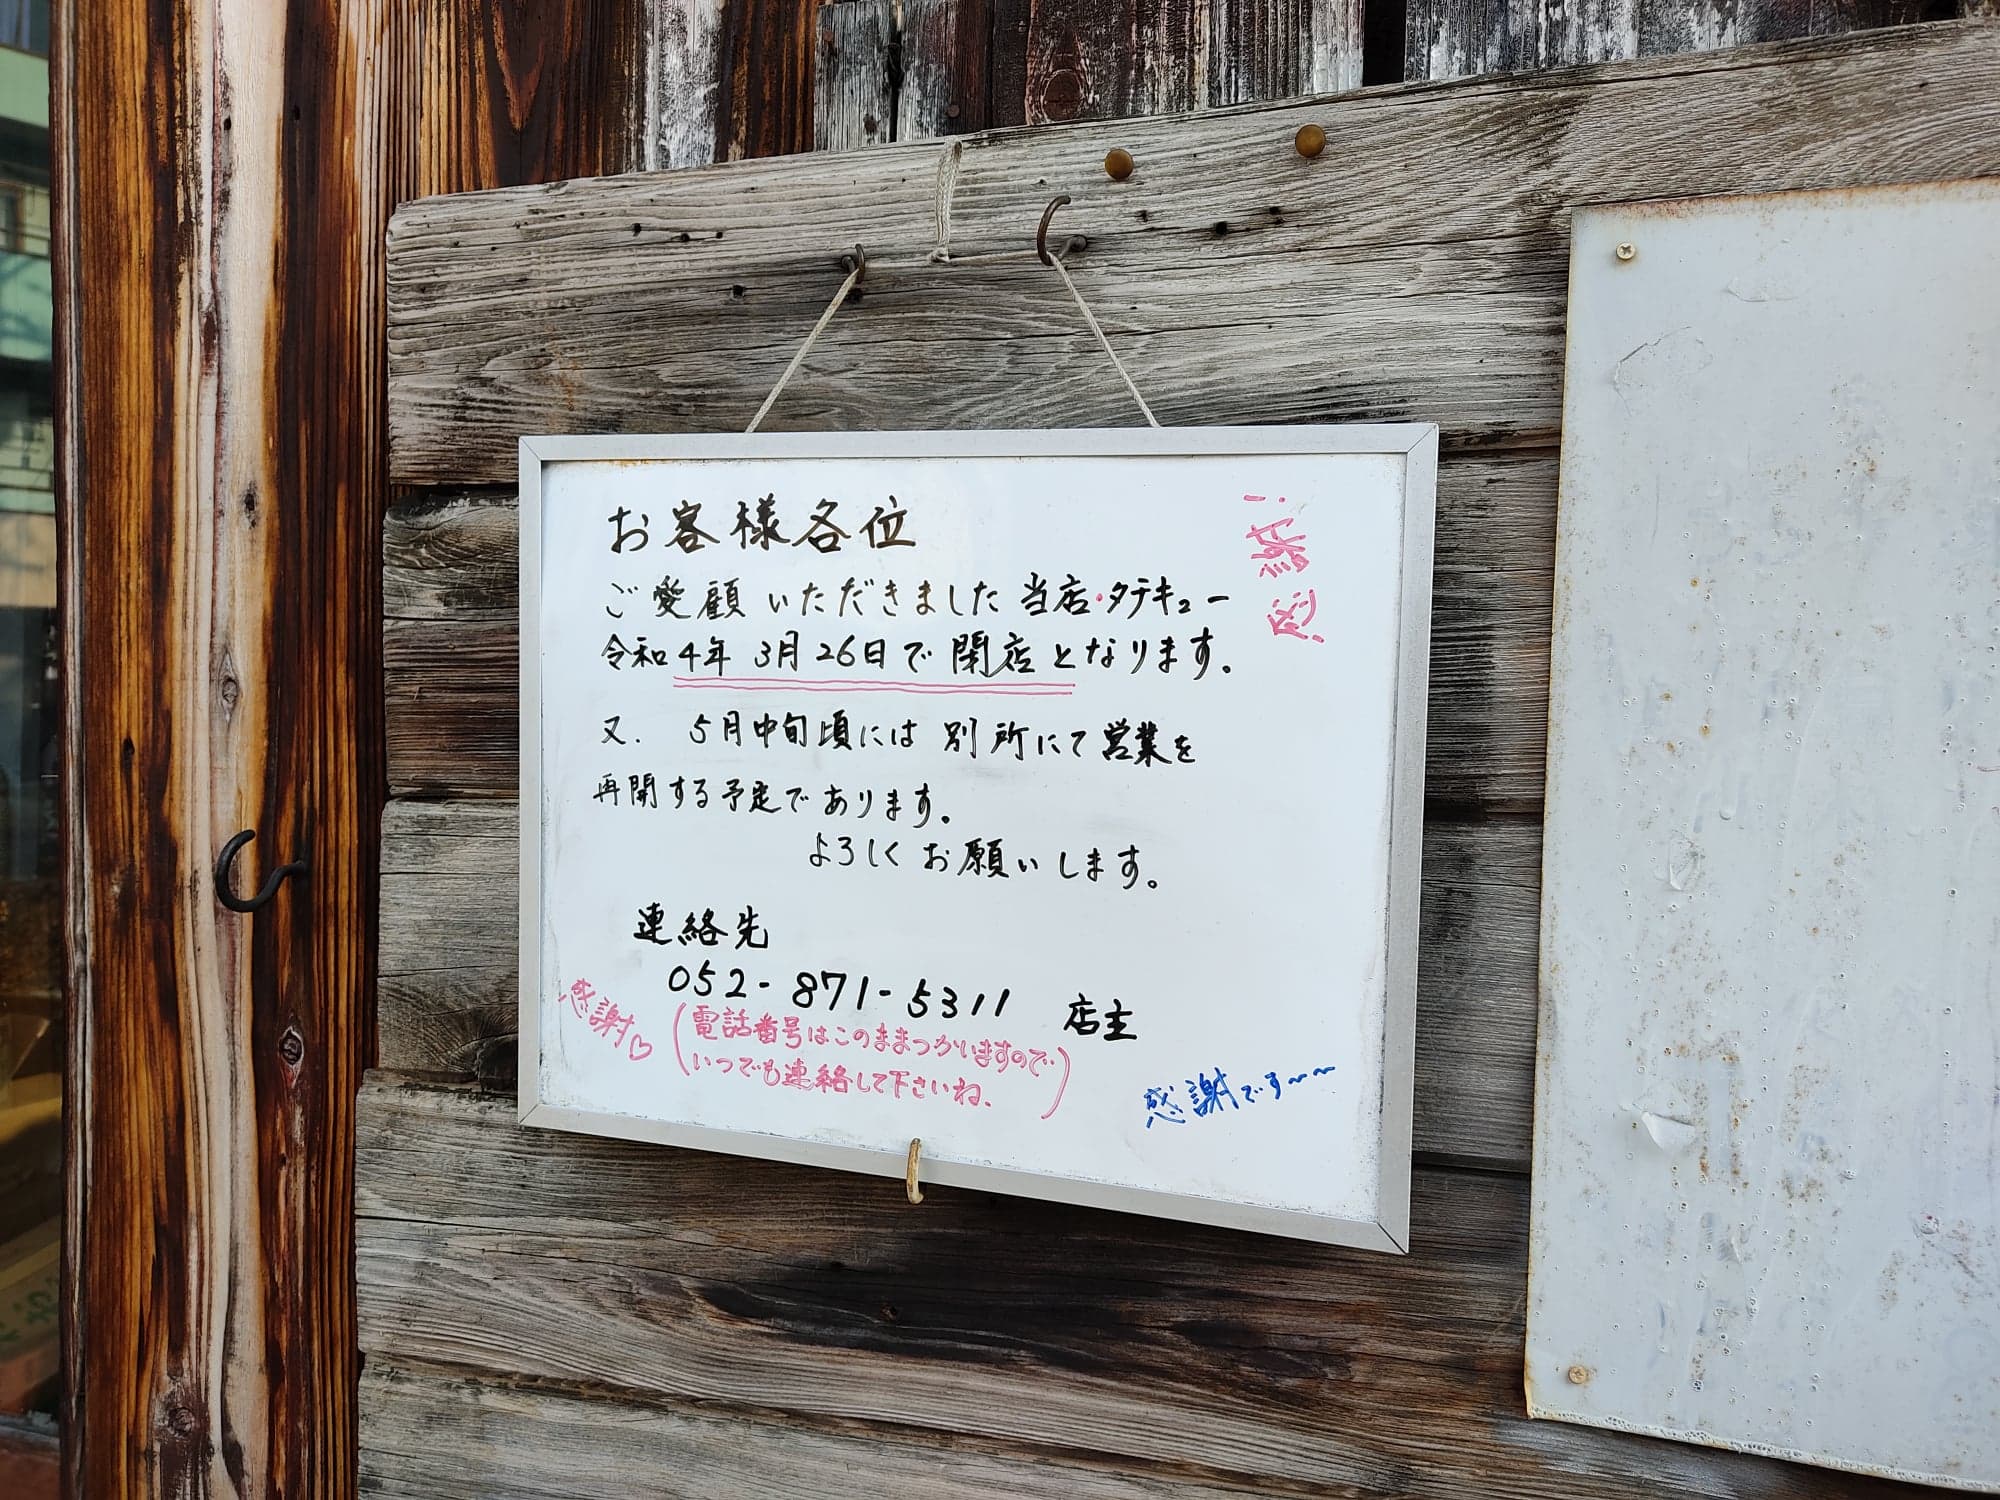 お客様各位
ご愛顧いただきました当店・タテキュー
令和4年3月26日で閉店となります。
又. 5月中旬頃には別所にて営業を
再開する予定であります。
よろしくお願いします。
連絡先
052-871-5311 店主
(電話番号はこのままつかいますので
いつでも連絡して下さいね.)
感謝♡
感謝です~~
感謝!